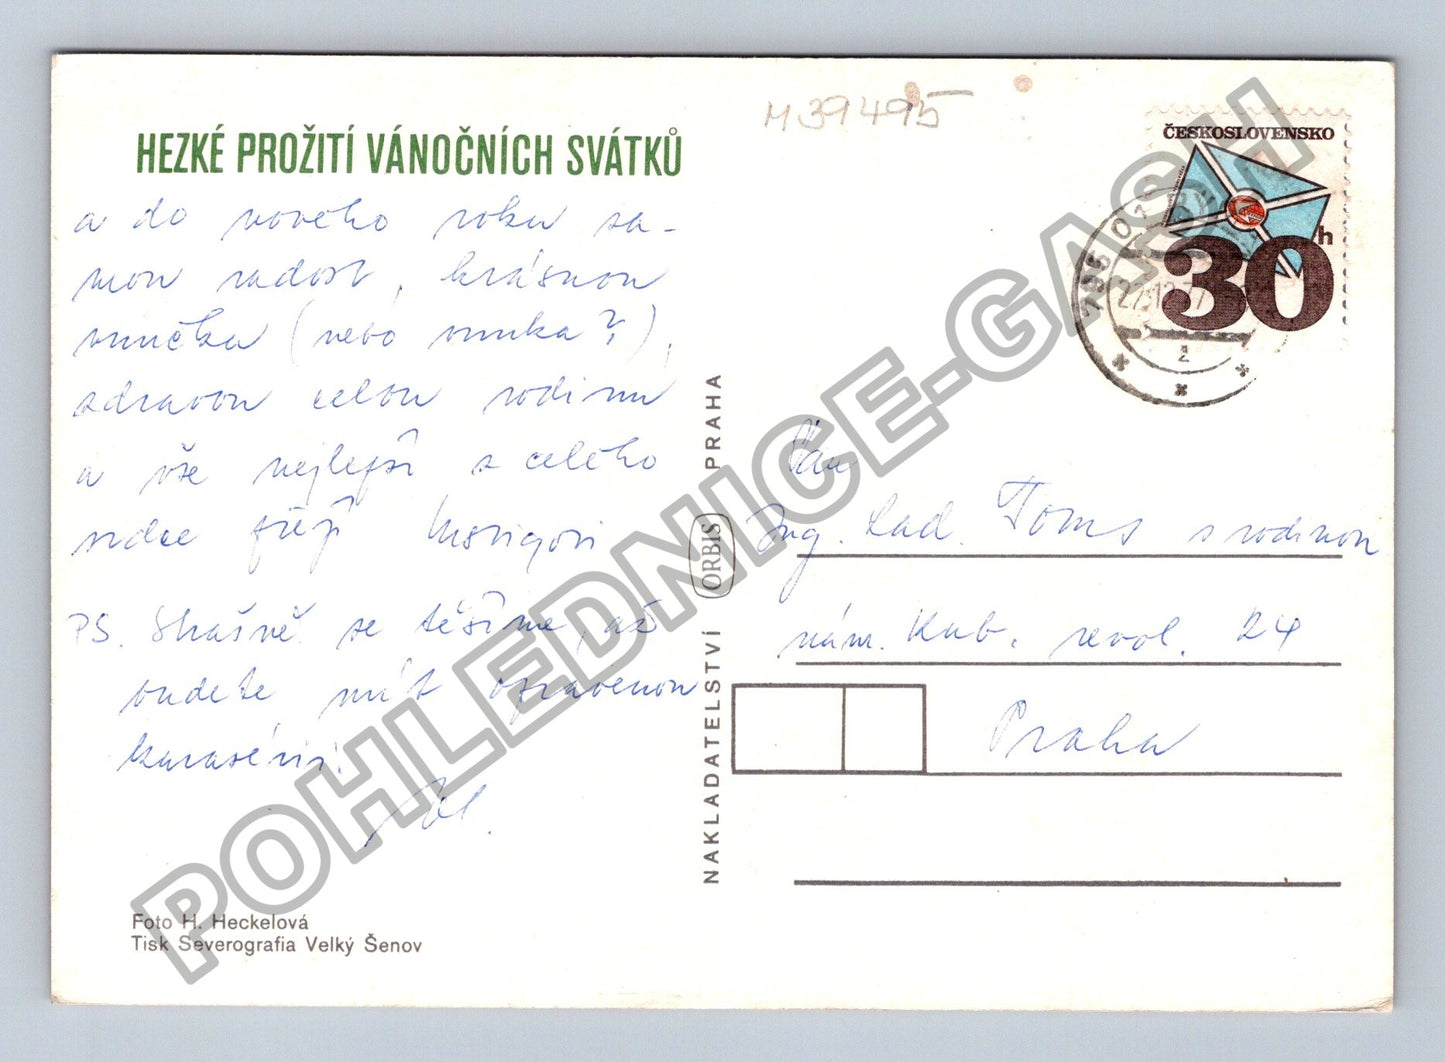 HEZKÉ PROŽITÍ VÁNOČNÍCH SVÁTKŮ
a do nového roku sa-
mou radost, krásnou
vnučku (nebo vnuka?),
zdravou celou rodinu
a vše nejlepší z celého
srdce přejí
PS. Strašně se těšíme, až
budete mít opravenou
M 39495
ČESKOSLOVENSKO
30h
795 01
27.12.77
2
Ing. Lad. Toms s rodinou
nám. Kub. revol. 24
Praha
NAKLADATELSTVÍ ORBIS PRAHA
Foto H. Heckelová
Tisk Severografia Velký Šenov
POHLEDNICE-GASH